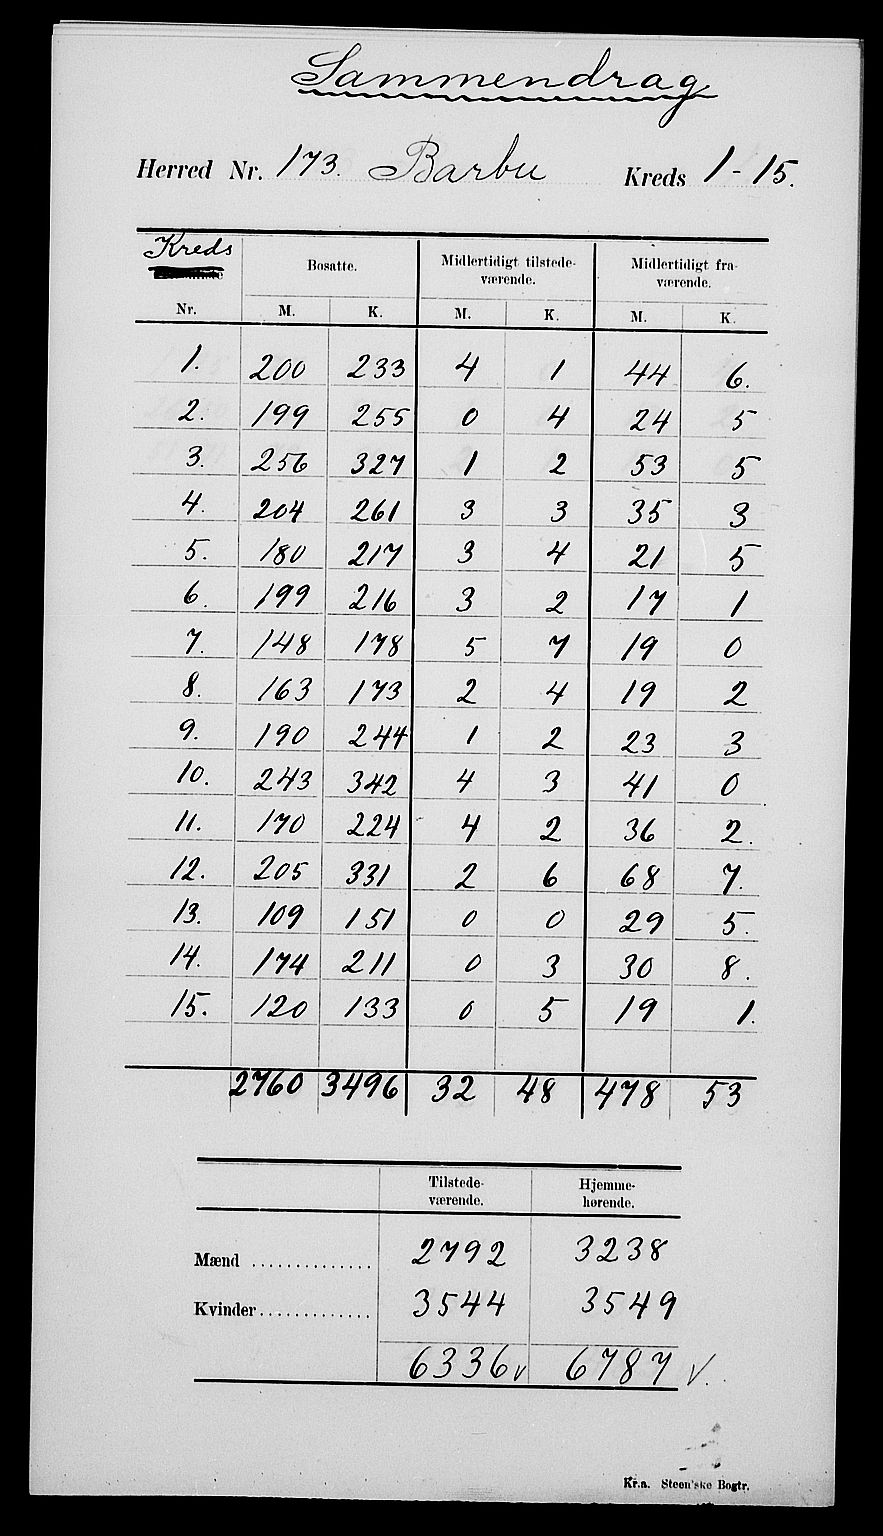 Sammendrag
Herred Nr. 173. Barbu Kreds 1-15.
Kreds Bosatte. Midlertidigt tilstede- Midlertidigt fra-
værende. værende.
Nr. M. K. M. K. M. K.
1. 200 233 4 1 44 6.
2. 199 255 0 4 24 5
3. 256 327 1 2 53 5
4. 204 261 3 3 35 3
5. 180 217 3 4 21 5
6. 199 216 3 2 17 1
7. 148 178 5 7 19 0
8. 163 173 2 4 19 2
9. 190 244 1 2 23 3
10. 243 342 4 3 41 0
11. 170 224 4 2 36 2.
12. 205 331 2 6 68 7.
13. 109 151 0 0 29 5.
14. 174 211 0 3 30 8.
15. 120 133 0 5 19 1.
2760 3496 32 48 478 53
Tilstede- Hjemme-
værende. hørende.
Mænd .............. 2792 3238
Kvinder............. 3544 3549
6336 v 6787 v
Kr.a. Steen'ske Bogtr.